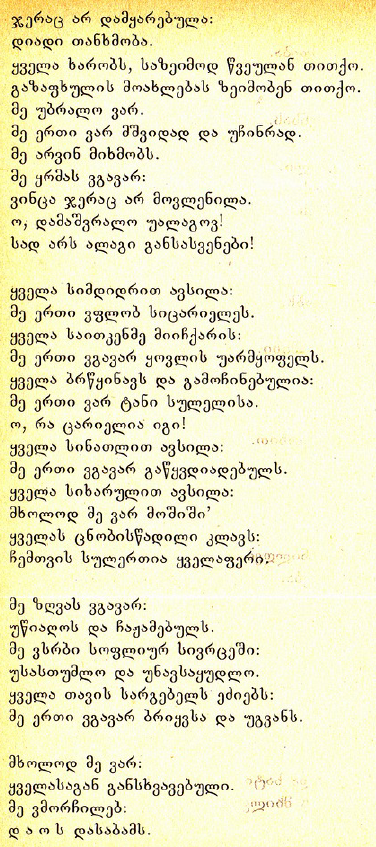 ჯერაც არ დამყარებულა:
დიადი თანხმობა.
ყველა ხარობს, საზეიმოდ წვეულან თითქო.
გაზაფხულის მოახლებას ზეიმობენ თითქო.
მე უბრალო ვარ.
მე ერთი ვარ მშვიდად და უჩინრად.
მე არვინ მიხმობს.
მე ყრმას ვგავარ:
ვინცა ჯერაც არ მოვლენილა.
ო, დამაშვრალო უალაგოვ!
სად არს ალაგი განსასვენები!

ყველა სიმდიდრით ავსილა:
მე ერთი ვფლობ სიცარიელეს.
ყველა საითკენმე მიიჩქარის:
მე ერთი ვგავარ ყოვლის უარმყოფელს.
ყველა ბრწყინავს და გამოჩინებულია:
მე ერთი ვარ ტანი სულელისა.
ო, რა ცარიელია იგი!
ყველა სინათლით ავსილა:
მე ერთი ვგავარ გაწყვდიადებულს.
ყველა სიხარულით ავსილა:
მხოლოდ მე ვარ მოშიში’
ყველას ცნობისწადილი კლავს:
ჩემთვის სულერთია ყველაფერი.

მე ზღვას ვგავარ:
უწიაღოს და ჩაჟამებულს.
მე ვსრბი სოფლიურ სივრცეში:
უსასთუმლო და უნავსაყუდლო.
ყველა თავის სარგებელს ეძიებს:
მე ერთი ვგავარ ბრიყვსა და უგვანს.

მხოლოდ მე ვარ:
ყველასაგან განსხვავებული.
მე ვმორჩილებ:
დ ა ო ს დასაბამს.